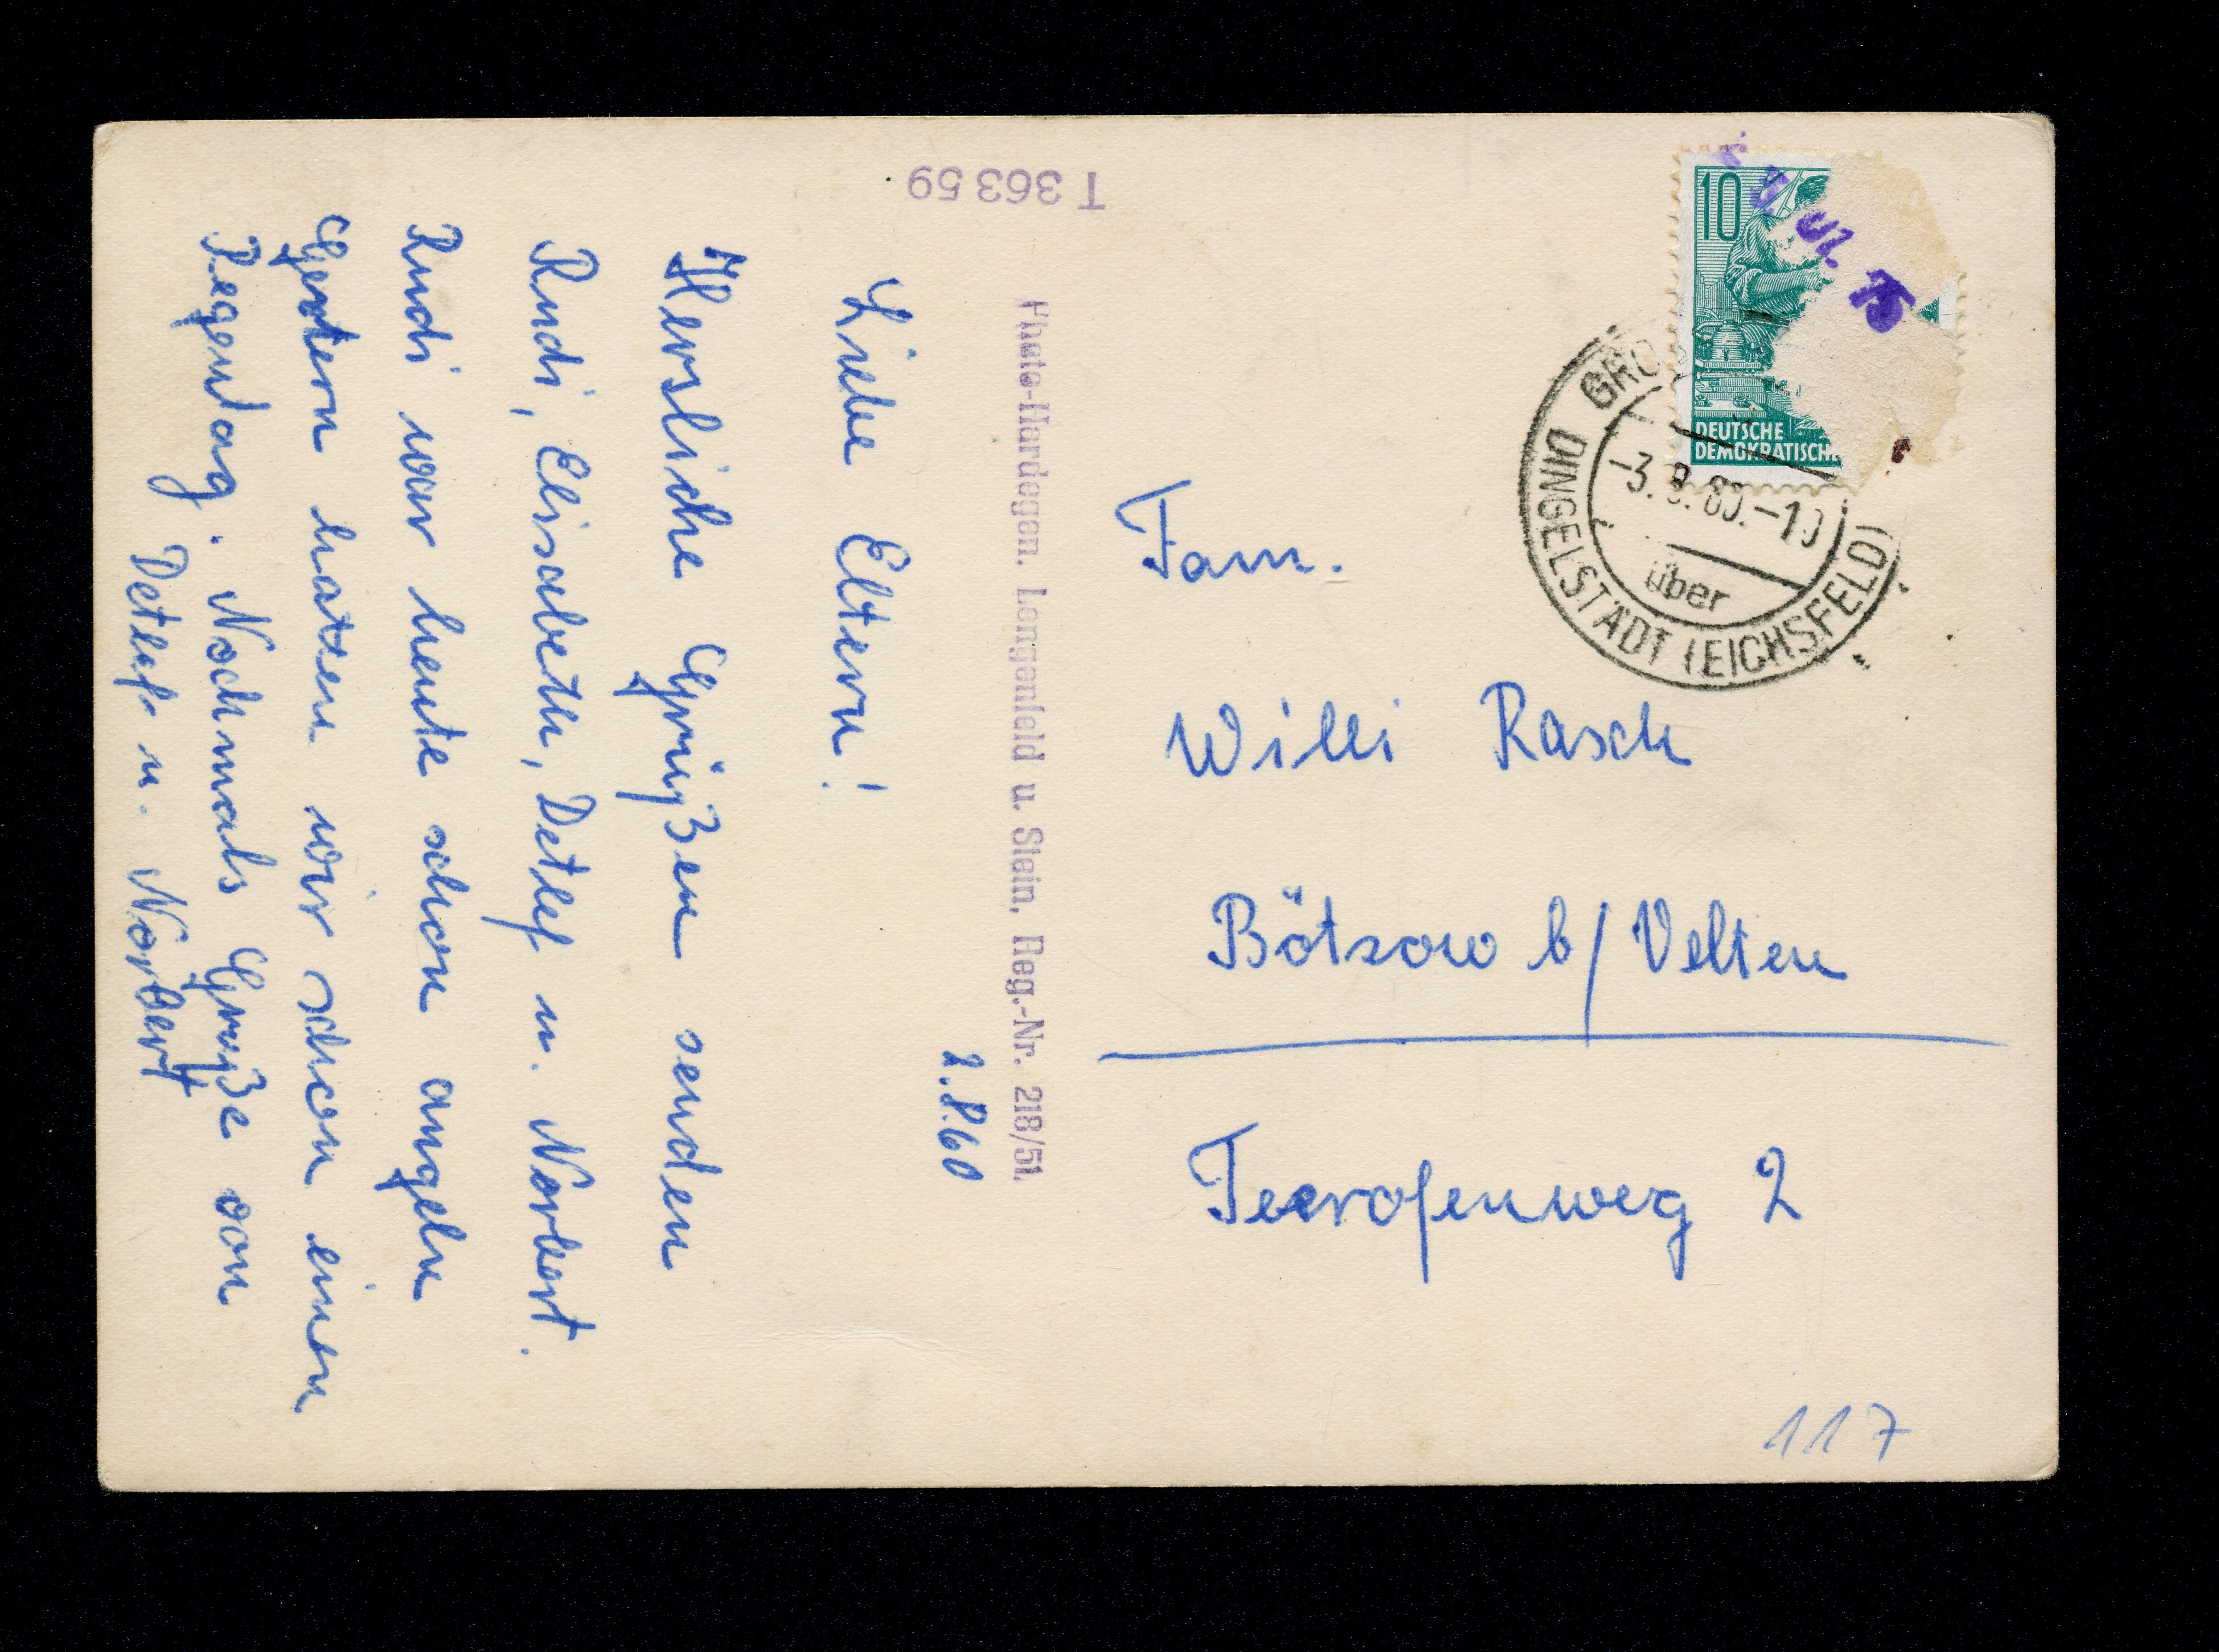 T 363 59
2.8.60
Liebe Eltern!
Herzliche Grüßen senden
Rudi, Elisabeth, Detlef u. Norbert.
Rudi war heute schon angeln
Gestern hatten wir schon einen
Regentag. Nochmals Grüße von
Detlef u. Norbert
Photo-Hardegen, Lengenfeld u. Stein, Reg.-Nr. 218/51.
10
DEUTSCHE
DEMOKRATISCHE
GRO
-3.8.60.-10
über
DINGELSTÄDT (EICHSFELD)
Fam.
Willi Rasch
Bötzow b/ Velten
Teerofenweg 2
117